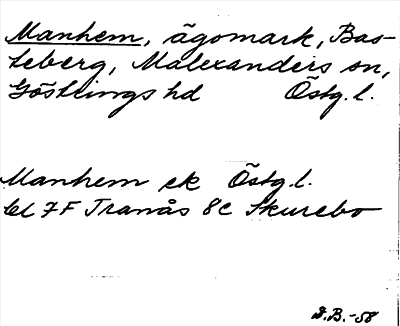 Manhem, ägomark, Bas-
teberg, Malexanders sn,
Göstrings hd Östg.l.
Manhem ek Östg.l.
bl 7F Tranås 8c Skurebo
D.B.-58